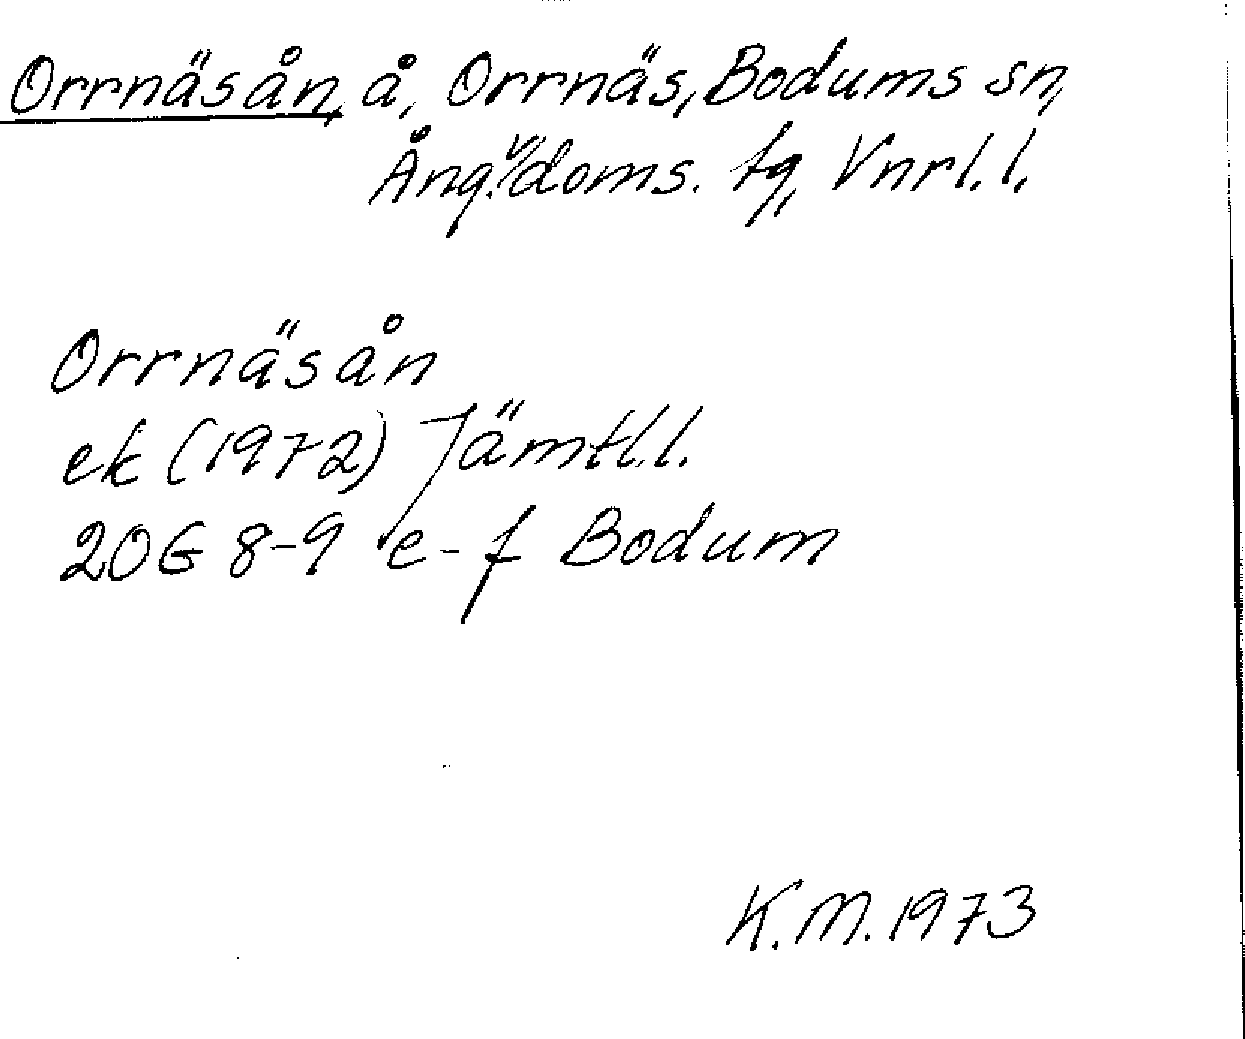 Orrnäsån, å, Orrnäs, Bodums sn,
Ång. v. doms. tg, Vnrl. l.
Orrnäsån
ek (1972) Jämtl. l.
20G 8-9 e-f Bodum
K.M. 1973